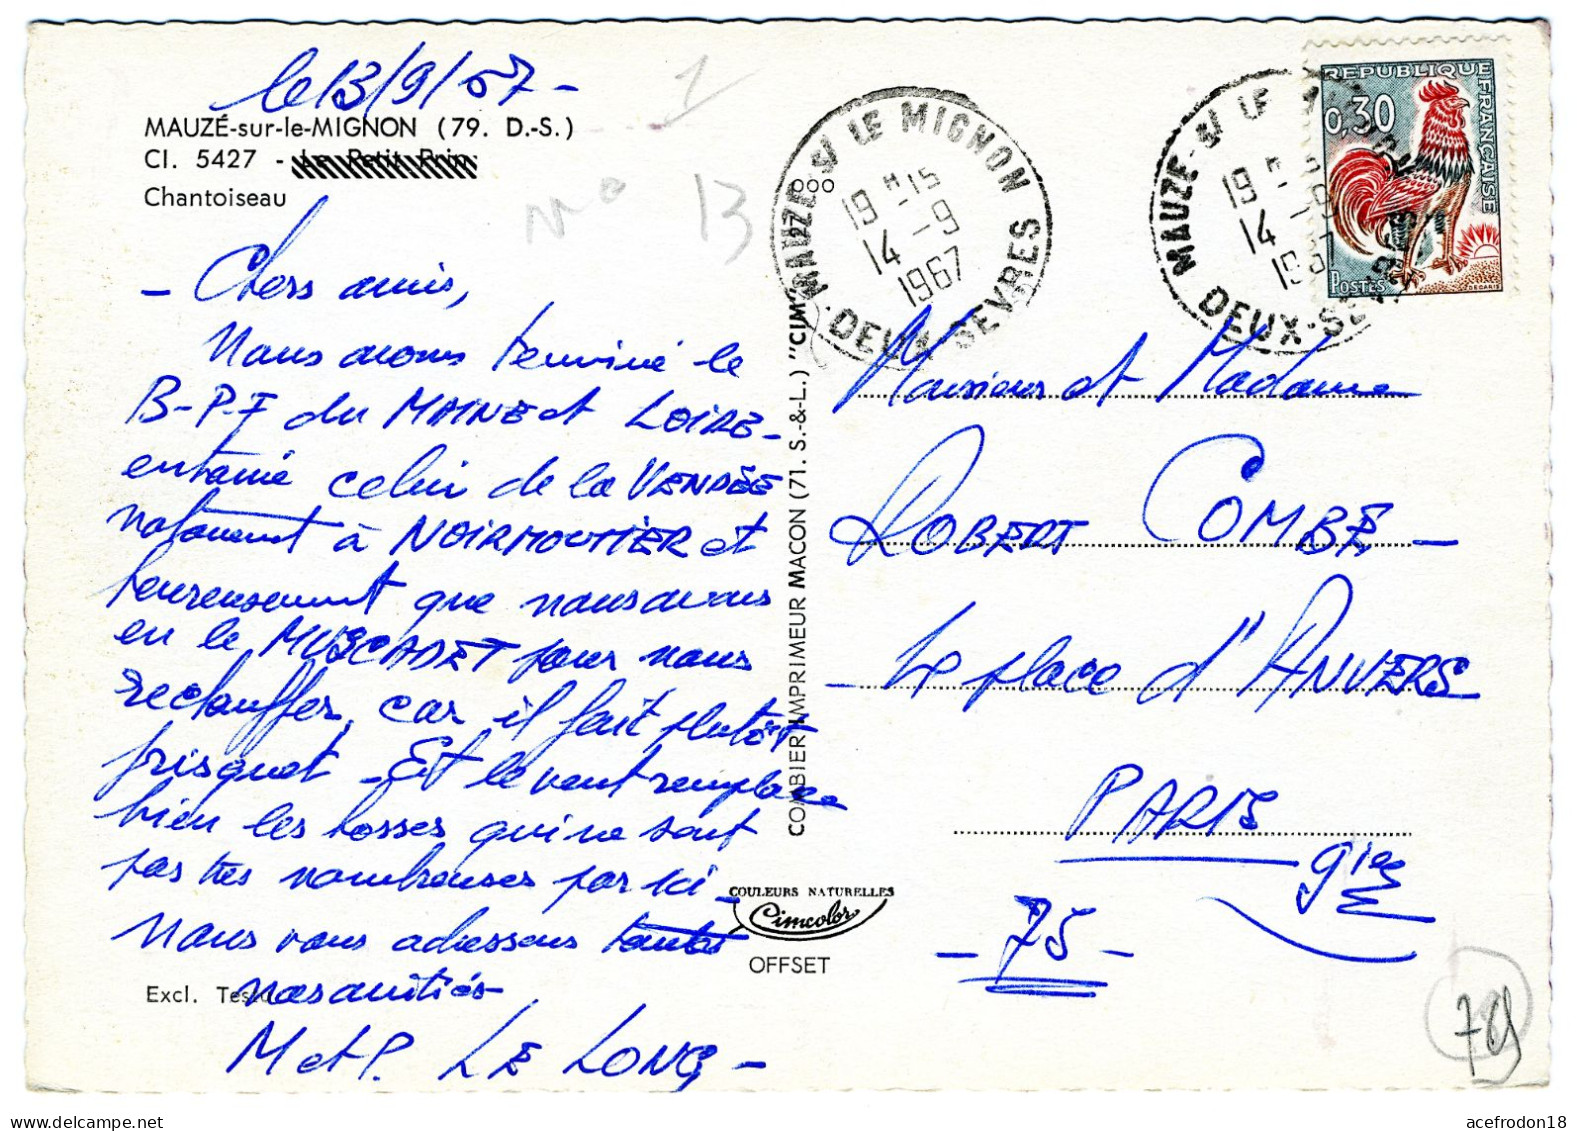 le 13/9/67 -
MAUZÉ-sur-le-MIGNON (79. D.-S.)
Cl. 5427 - Le Petit Prin
Chantoiseau
N° 13
1
- Chers amis,
Nous avons terminé le
B-P-F du MAINE et LOIRE -
entamé celui de la VENDÉE
notamment à NOIRMOUTIER et
heureusement que nous avons
eu le MUSCADET pour nous
rechauffer, car il fait plutôt
frisquet - Et le vent remplace
bien les bosses qui ne sont
pas très nombreuses par ici -
Nous vous adressons toutes
nos amitiés
Excl.
M et P. LE LONG -
COMBIER IMPRIMEUR MACON (71. S.-&-L.) "CIM"
COULEURS NATURELLES
Cimcolor
OFFSET
MAUZE-S/ LE MIGNON
19 H 15
14 - 9
1967
DEUX-SEVRES
MAUZE-S/ LE
19 H
14 - 9
1967
DEUX-SEVRES
REPUBLIQUE FRANÇAISE
0,30
POSTES
DECARIS
Monsieur et Madame
ROBERT COMBE -
- place d'ANVERS
PARIS
9ième
- 75 -
79
acefrodon18